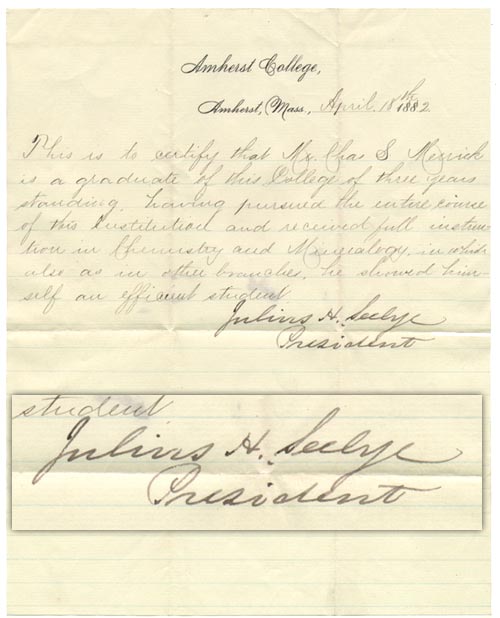 Amherst College,
Amherst, Mass., April. 18th 1882
This is to certify that Mr. Chas S Merrick
is a graduate of this College of three years
standing, having pursued the entire course
of this Institution and received full instruc-
tion in Chemistry and Mineralogy, in which
also as in other branches, he showed him-
self an efficient student.
Julius H. Seelye
President
student
Julius H. Seelye
President